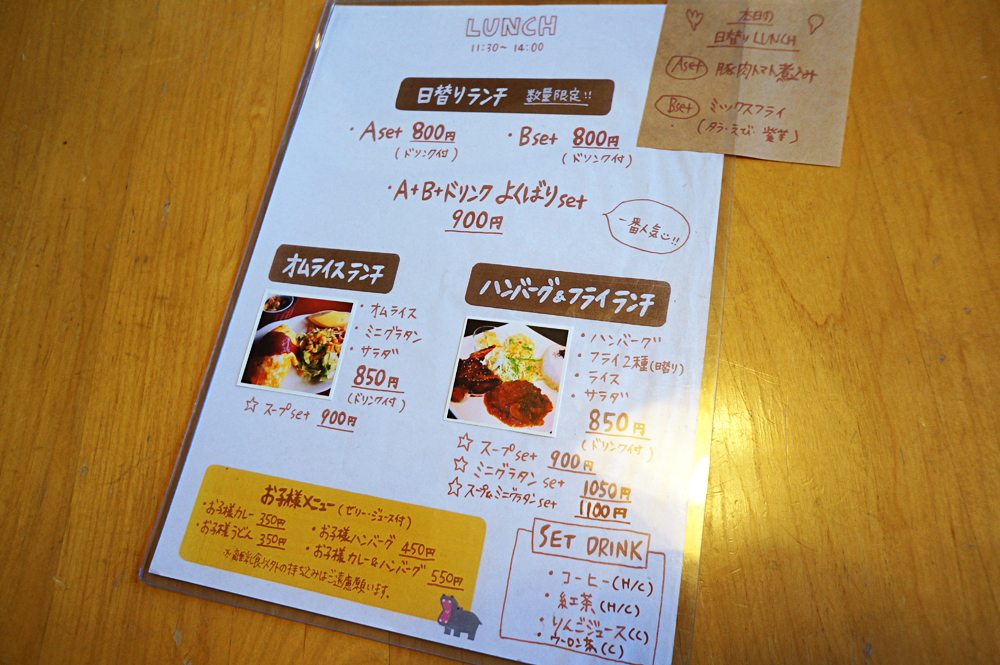 LUNCH
11:30~14:00
日替りランチ 数量限定!!
・Aset 800円
(ドリンク付)
・Bset 800円
(ドリンク付)
・A+B+ドリンク よくばりset
900円
一番人気!!
オムライスランチ
・オムライス
・ミニグラタン
・サラダ
850円
(ドリンク付)
☆スープset 900円
ハンバーグ&フライランチ
・ハンバーグ
・フライ2種(日替り)
・ライス
・サラダ
850円
(ドリンク付)
☆スープset 900円
☆ミニグラタンset 1050円
☆スープ&ミニグラタンset 1100円
お子様メニュー(ゼリー・ジュース付)
・お子様カレー 350円
・お子様うどん 350円
・お子様ハンバーグ 450円
・お子様カレー&ハンバーグ 550円
※離乳食以外の持ち込みはご遠慮願います。
SET DRINK
・コーヒー(H/C)
・紅茶(H/C)
・りんごジュース(C)
・ウーロン茶(C)
日の
日替りLUNCH
Aset 豚肉トマト煮込み
Bset ミックスフライ
(タラ・えび・紫芋)